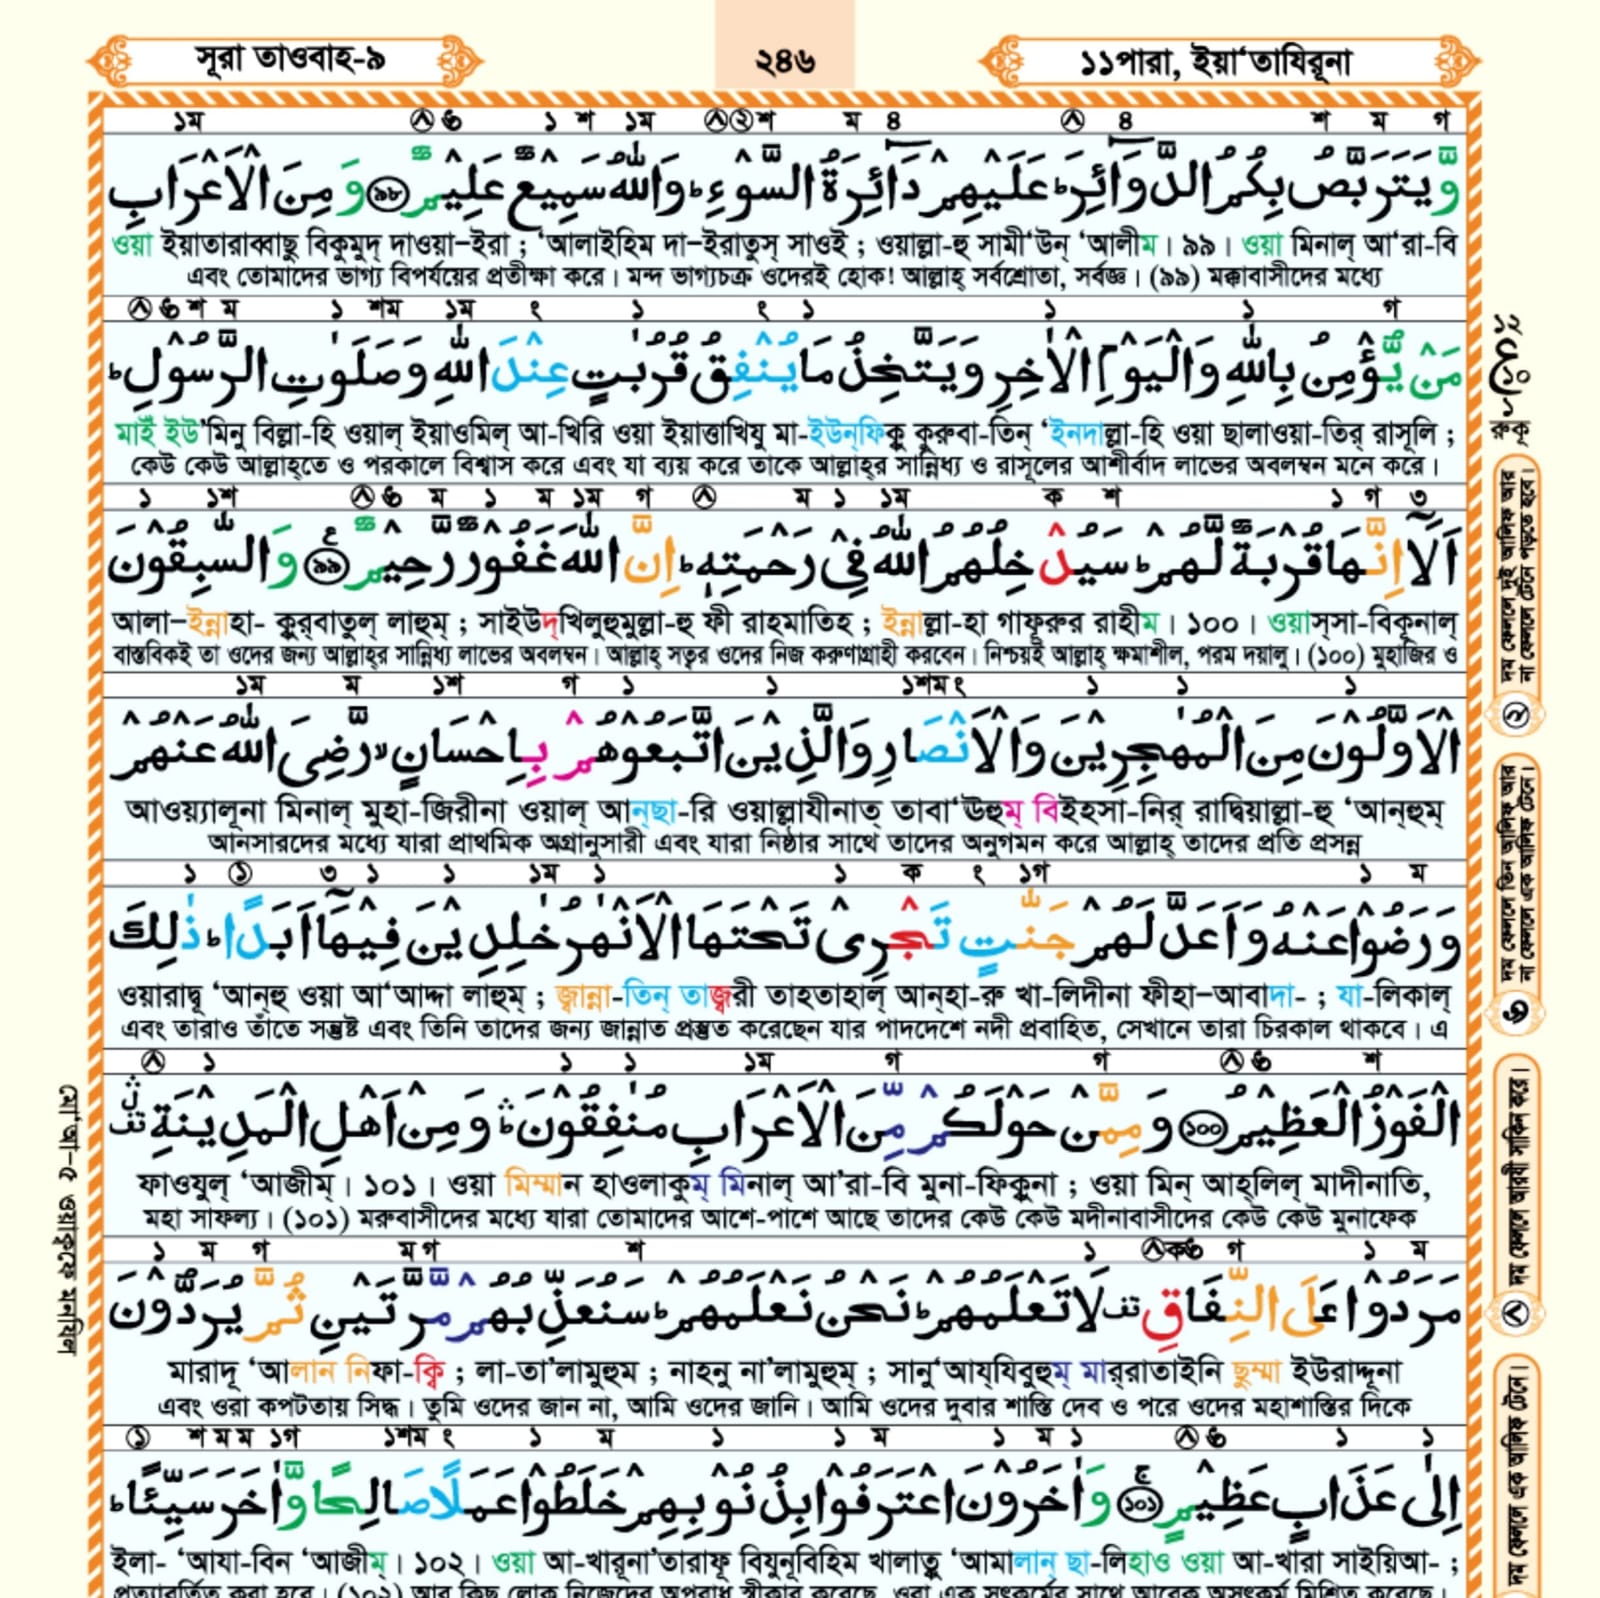 সূরা তাওবাহ-৯
২৪৬
১১পারা, ইয়া‘তাযিরূনা
وَّيَتَرَبَّصُ بِكُمُ الدَّوَآئِرَ ؕ عَلَيْهِمْ دَآئِرَةُ السَّوْءِ ؕ وَاللّٰهُ سَمِيْعٌ عَلِيْمٌ ﴿۹۸﴾ وَمِنَ الْاَعْرَابِ
ওয়া ইয়াতারাব্বাছু বিকুমুদ্ দাওয়া–ইরা ; ‘আলাইহিম দা–ইরাতুস্ সাওই ; ওয়াল্লা-হু সামী‘উন্ ‘আলীম। ৯৯। ওয়া মিনাল্ আ‘রা-বি
এবং তোমাদের ভাগ্য বিপর্যয়ের প্রতীক্ষা করে। মন্দ ভাগ্যচক্র ওদেরই হোক! আল্লাহ্ সর্বশ্রোতা, সর্বজ্ঞ। (৯৯) মক্কাবাসীদের মধ্যে
مَنْ يُّؤْمِنُ بِاللّٰهِ وَالْيَوْمِ الْاٰخِرِ وَيَتَّخِذُ مَا يُنْفِقُ قُرُبٰتٍ عِنْدَ اللّٰهِ وَصَلَوٰتِ الرَّسُوْلِ ؕ
মাইঁ ইউ’মিনু বিল্লা-হি ওয়াল্ ইয়াওমিল্ আ-খিরি ওয়া ইয়াত্তাখিযু মা-ইউন্‌ফিকু কুরুবা-তিন্ ‘ইনদাল্লা-হি ওয়া ছালাওয়া-তির্ রাসূলি ;
কেউ কেউ আল্লাহ্‌তে ও পরকালে বিশ্বাস করে এবং যা ব্যয় করে তাকে আল্লাহ্‌র সান্নিধ্য ও রাসূলের আশীর্বাদ লাভের অবলম্বন মনে করে।
اَلَآ اِنَّهَا قُرْبَةٌ لَّهُمْ ؕ سَيُدْخِلُهُمُ اللّٰهُ فِيْ رَحْمَتِهٖ ؕ اِنَّ اللّٰهَ غَفُوْرٌ رَّحِيْمٌ ﴿۹۹﴾ وَالسّٰبِقُوْنَ
আলা–ইন্নাহা- কুর্‌বাতুল্ লাহুম্ ; সাইউদ্‌খিলুহুমুল্লা-হু ফী রাহমাতিহ ; ইন্নাল্লা-হা গাফূরুর রাহীম। ১০০। ওয়াস্‌সা-বিকূনাল্
বাস্তবিকই তা ওদের জন্য আল্লাহ্‌র সান্নিধ্য লাভের অবলম্বন। আল্লাহ্ সত্বর ওদের নিজ করুণাগ্রাহী করবেন। নিশ্চয়ই আল্লাহ্ ক্ষমাশীল, পরম দয়ালু। (১০০) মুহাজির ও
الْاَوَّلُوْنَ مِنَ الْمُهٰجِرِيْنَ وَالْاَنْصَارِ وَالَّذِيْنَ اتَّبَعُوْهُمْ بِاِحْسَانٍ ۙ رَّضِيَ اللّٰهُ عَنْهُمْ
আওয়্যালূনা মিনাল্ মুহা-জিরীনা ওয়াল্ আন্‌ছা-রি ওয়াল্লাযীনাত্ তাবা‘ঊহুম্ বিইহসা-নির্ রাদ্বিয়াল্লা-হু ‘আন্‌হুম্
আনসারদের মধ্যে যারা প্রাথমিক অগ্রানুসারী এবং যারা নিষ্ঠার সাথে তাদের অনুগমন করে আল্লাহ্ তাদের প্রতি প্রসন্ন
وَرَضُوْا عَنْهُ وَاَعَدَّ لَهُمْ جَنّٰتٍ تَجْرِيْ تَحْتَهَا الْاَنْهٰرُ خٰلِدِيْنَ فِيْهَآ اَبَدًا ؕ ذٰلِكَ
ওয়ারাদ্বূ ‘আন্‌হু ওয়া আ‘আদ্দা লাহুম্ ; জ্বান্না-তিন্ তাজ্বরী তাহতাহাল্ আন্‌হা-রু খা-লিদীনা ফীহা–আবাদা- ; যা-লিকাল্
এবং তারাও তাঁতে সন্তুষ্ট এবং তিনি তাদের জন্য জান্নাত প্রস্তুত করেছেন যার পাদদেশে নদী প্রবাহিত, সেখানে তারা চিরকাল থাকবে। এ
الْفَوْزُ الْعَظِيْمُ ﴿۱۰۰﴾ وَمِمَّنْ حَوْلَكُمْ مِّنَ الْاَعْرَابِ مُنٰفِقُوْنَ ۛؕ وَمِنْ اَهْلِ الْمَدِيْنَةِ ۛ
ফাওযুল্ ‘আজীম্। ১০১। ওয়া মিম্মান হাওলাকুম্ মিনাল্ আ’রা-বি মুনা-ফিকুনা ; ওয়া মিন্ আহ্‌লিল্ মাদীনাতি,
মহা সাফল্য। (১০১) মরুবাসীদের মধ্যে যারা তোমাদের আশে-পাশে আছে তাদের কেউ কেউ মদীনাবাসীদের কেউ কেউ মুনাফেক
مَرَدُوْا عَلَى النِّفَاقِ لَا تَعْلَمُهُمْ ؕ نَحْنُ نَعْلَمُهُمْ ؕ سَنُعَذِّبُهُمْ مَّرَّتَيْنِ ثُمَّ يُرَدُّوْنَ
মারাদূ ‘আলান নিফা-ক্বি ; লা-তা’লামুহুম ; নাহনু না’লামুহুম্ ; সানু‘আয্‌যিবুহুম্ মার্‌রাতাইনি ছুম্মা ইউরাদ্দূনা
এবং ওরা কপটতায় সিদ্ধ। তুমি ওদের জান না, আমি ওদের জানি। আমি ওদের দুবার শাস্তি দেব ও পরে ওদের মহাশাস্তির দিকে
اِلٰى عَذَابٍ عَظِيْمٍ ﴿۱۰۱﴾ وَاٰخَرُوْنَ اعْتَرَفُوْا بِذُنُوْبِهِمْ خَلَطُوْا عَمَلًا صَالِحًا وَّاٰخَرَ سَيِّئًا ؕ
ইলা- ‘আযা-বিন ‘আজীম্। ১০২। ওয়া আ-খারূনা’তারাফূ বিযুনূবিহিম খালাতু ‘আমালান্ ছা-লিহাও ওয়া আ-খারা সাইয়িআ- ;
প্রত্যাবর্তিত করা হবে। (১০২) আর কিছু লোক নিজেদের অপরাধ স্বীকার করেছে, ওরা এক সৎকর্মের সাথে আরেক অসৎকর্ম মিশ্রিত করেছে।